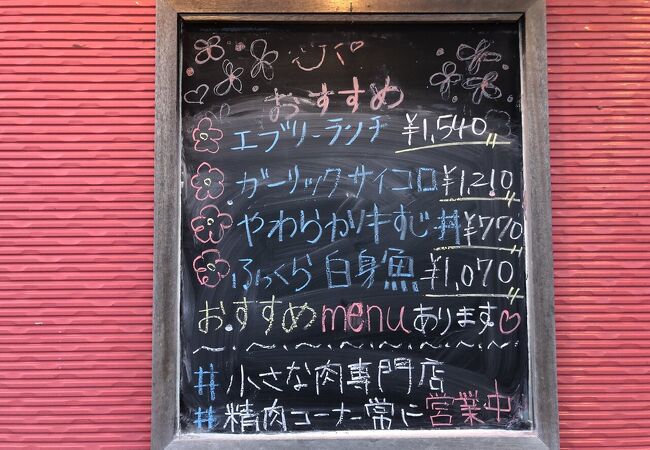 おすすめ
エブリーランチ ¥1,540
ガーリックサイコロ ¥1,210
やわらか牛すじ丼 ¥770
ふっくら白身魚 ¥1,070
おすすめmenuあります♡
#小さな肉専門店
#精肉コーナー常に営業中